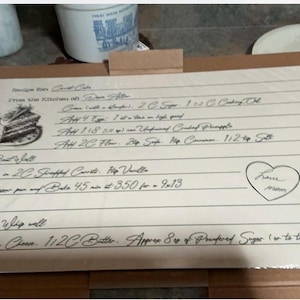 Recipe For: Carrot Cake
From the Kitchen of: Susan Allen
Cream (with a blender) 2C Sugar 1 1/2 C Cooking Oil
Add 4 Eggs 1 at a time on high speed
Add 1 can Undrained Crushed Pineapple
Add 2C Flour, 2tsp Soda, 2tsp Cinnamon, 1 1/2 tsp Salt
Beat Well
in 2C Shredded Carrots, 2tsp Vanilla
pan and Bake 45 min at 350 for a 9x13
Love
mom
Whip well
Cheese, 1/2C Butter, Approx 8 oz of Powdered Sugar (or to